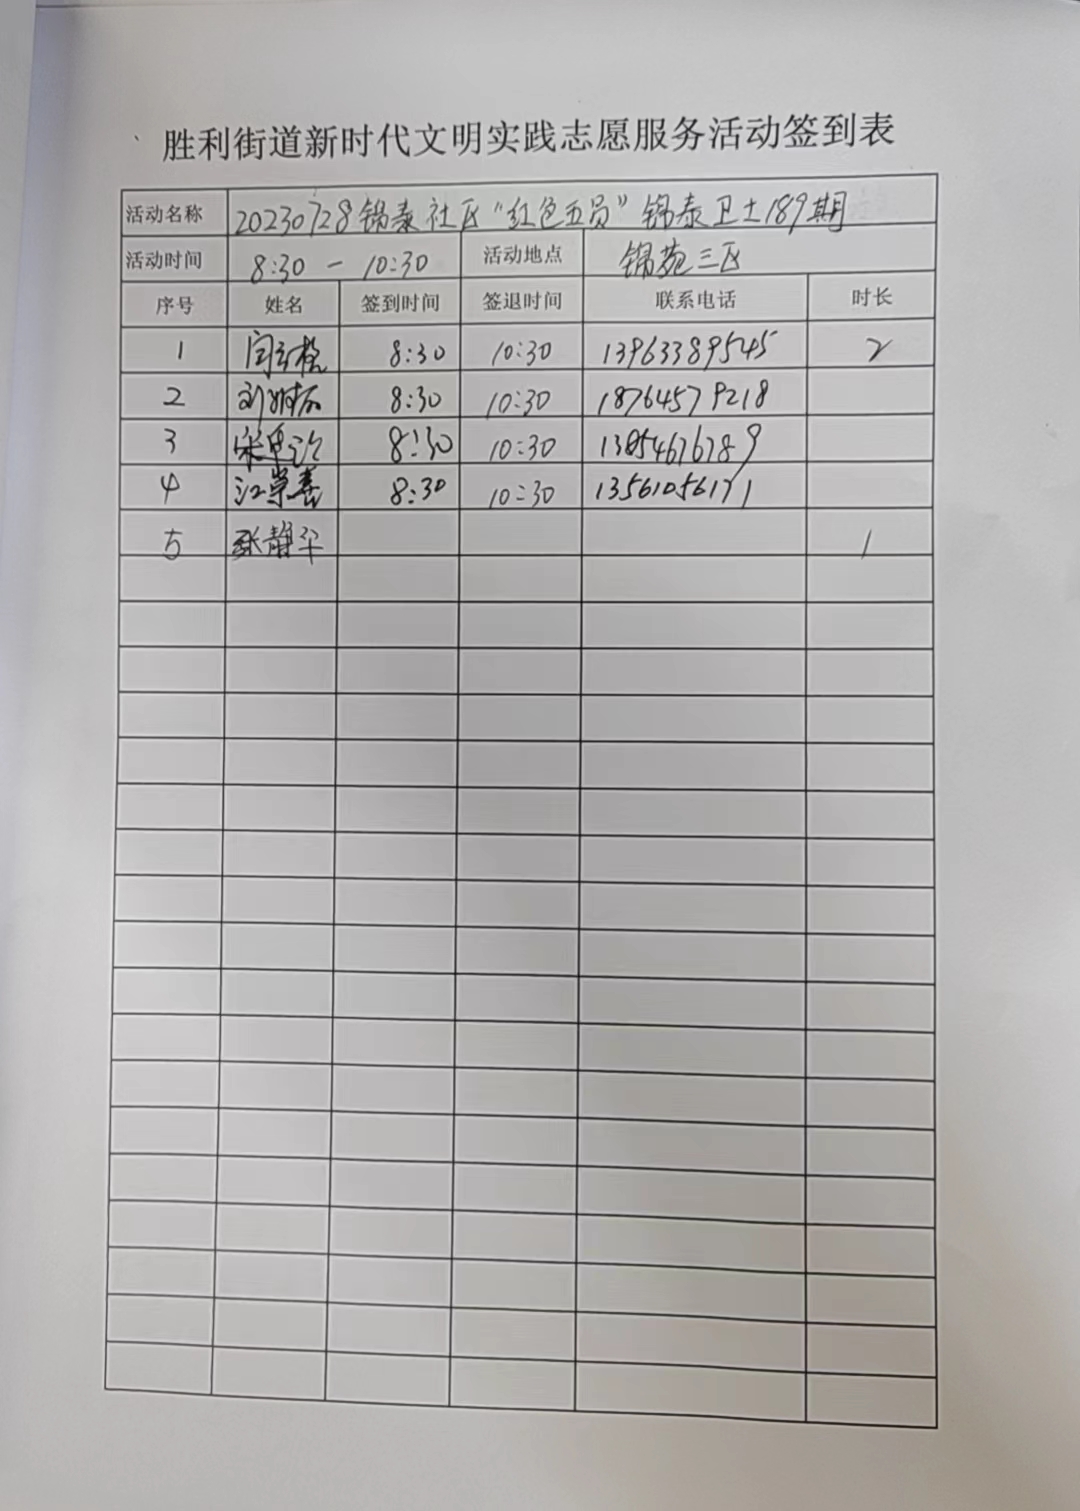 胜利街道新时代文明实践志愿服务活动签到表
活动名称 20230728锦泰社区“红色五员”锦泰卫士189期
活动时间 8:30 - 10:30 活动地点 锦苑三区
序号 姓名 签到时间 签退时间 联系电话 时长
1 8:30 10:30 13963389545 2
2 8:30 10:30 18764579218
3 8:30 10:30
4 江崇喜 8:30 10:30 13561056171
5 张静华 1